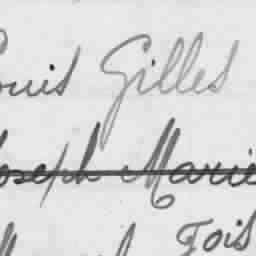 Louis Gilles
Joseph Marie
Fois